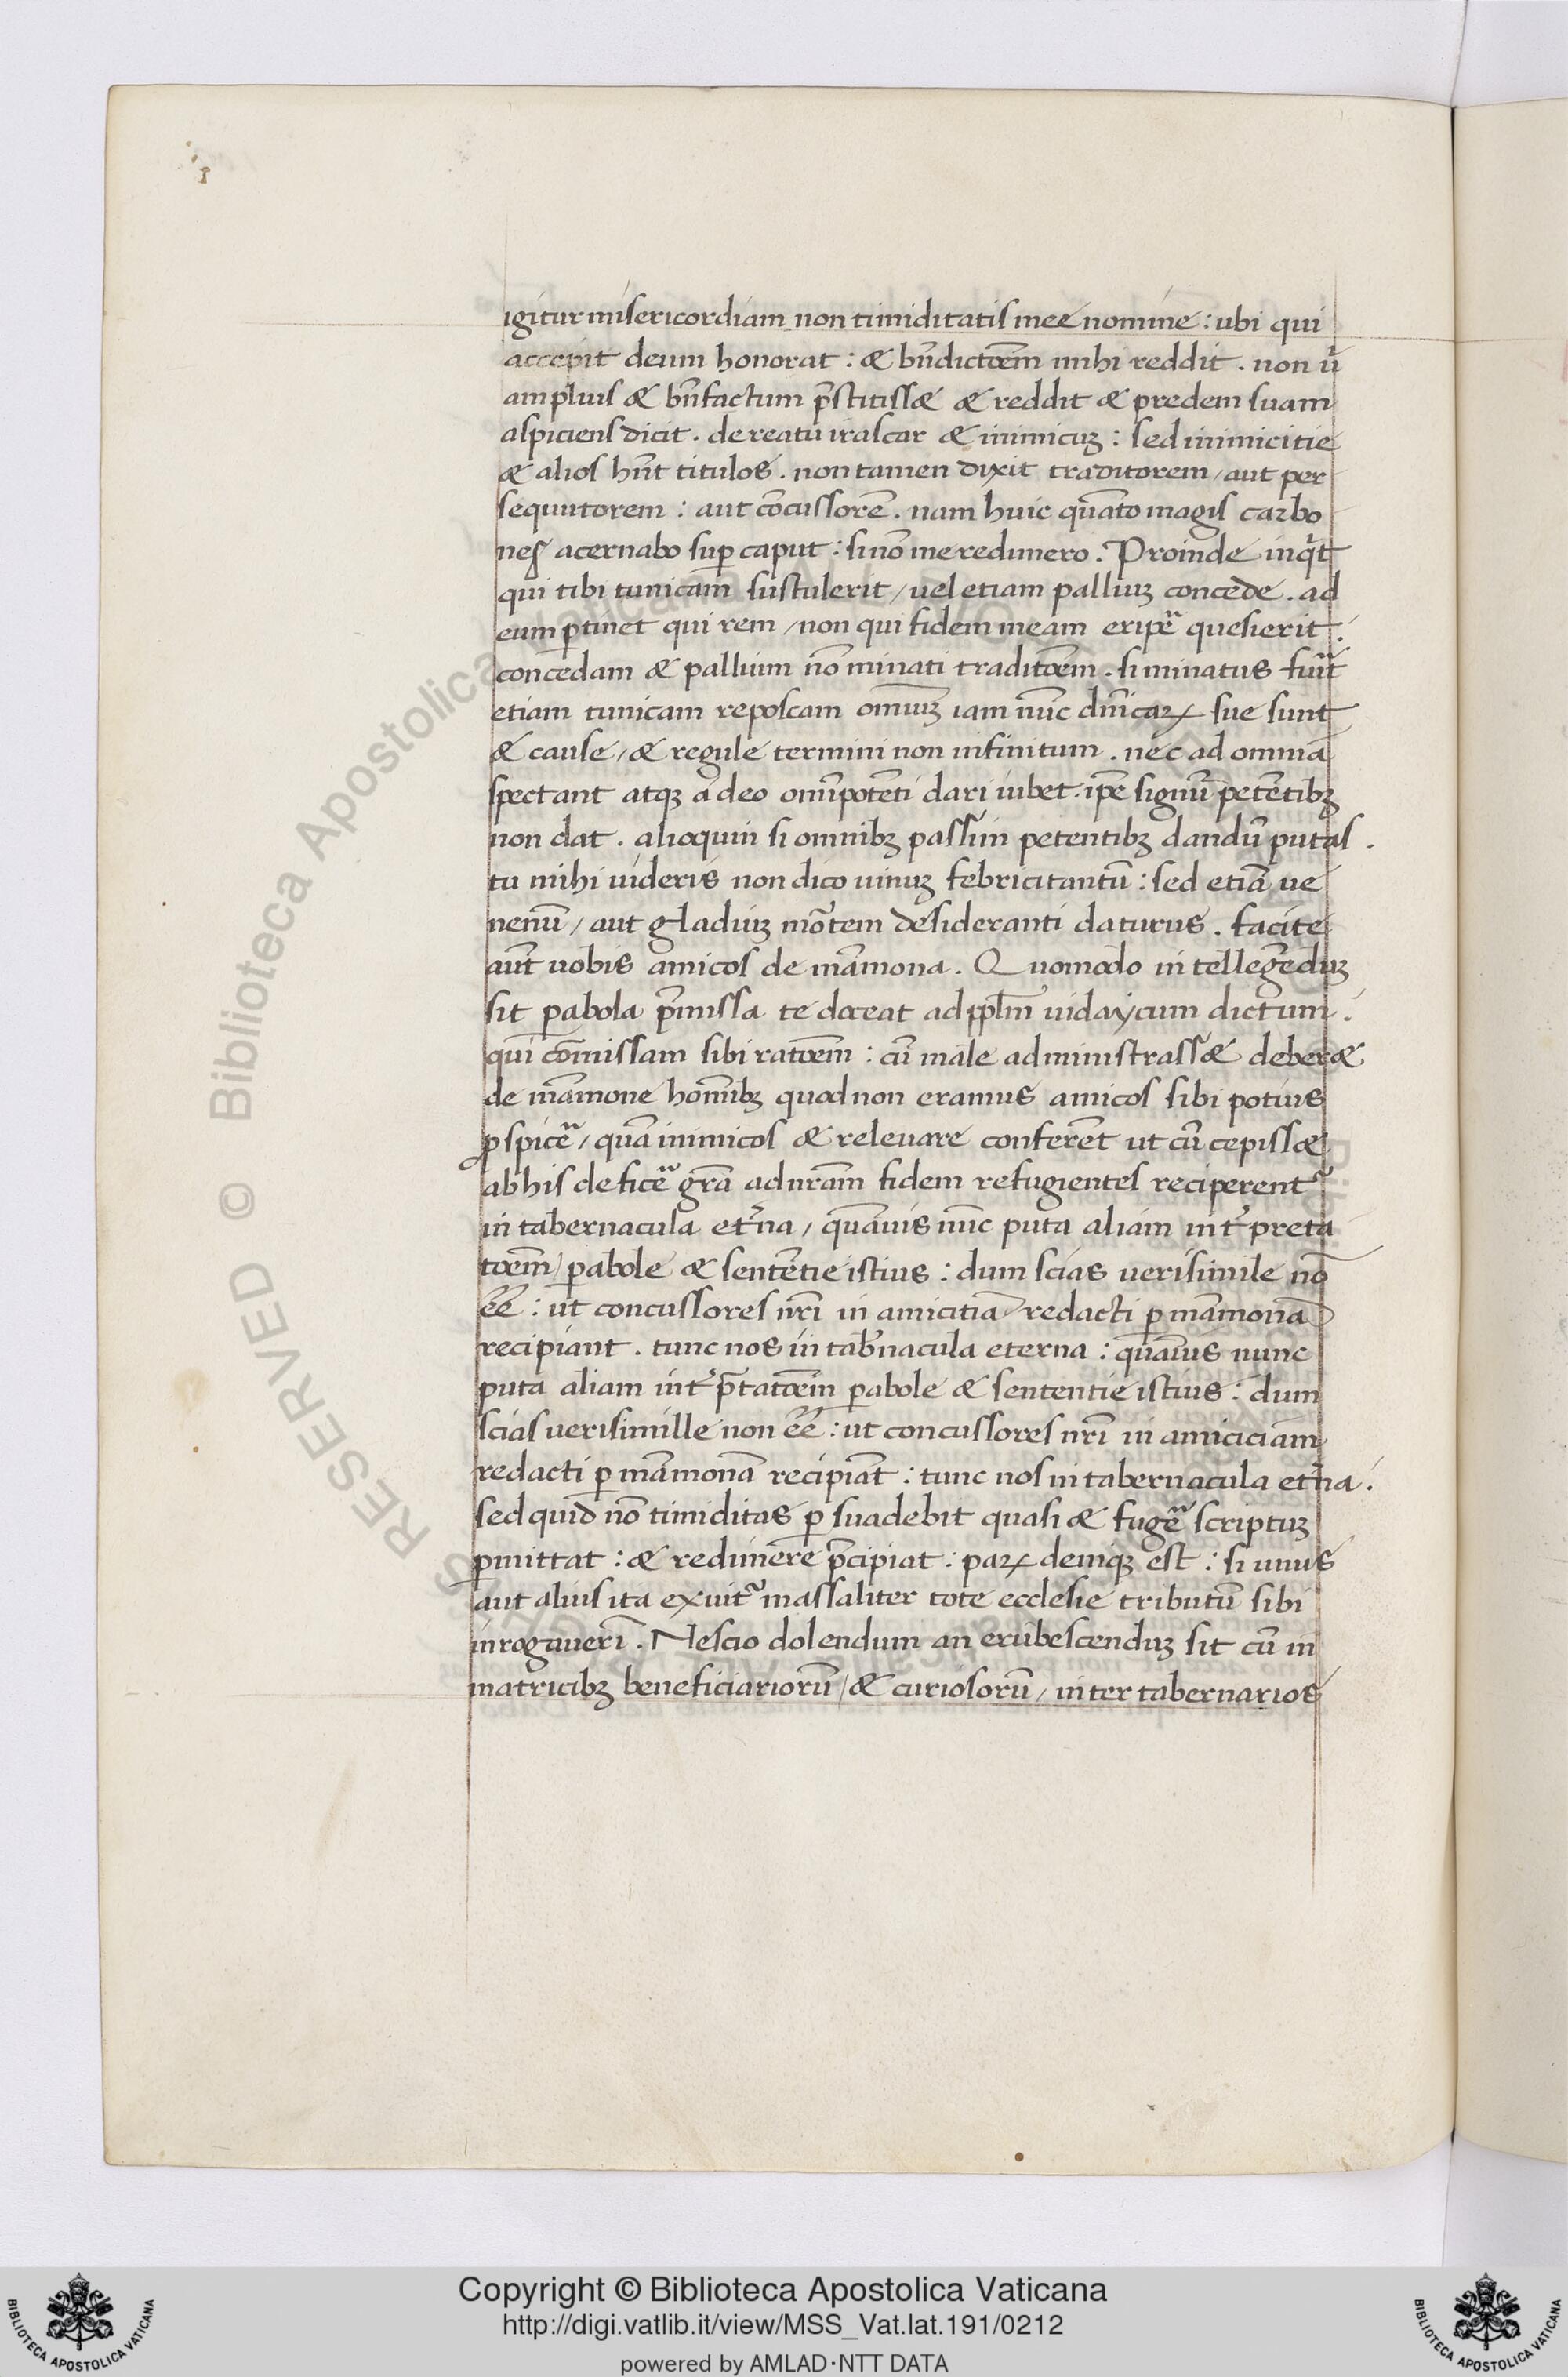 igitur misericordiam non timiditatis meę nomine : ubi qui
accepit deum honorat : & bn̄dictōem mihi reddit . non ū
amplius & bn̄factum p̄stitisset & reddit & predem suam
aspiciens dicit . de reatu irascar & inimicuꝫ : sed inimicitie
& alios hn̄t titulos . non tamen dixit traditorem / aut per
sequutorem : aut cōcussorē . nam huic quāto magis carbo
nes acernabo suꝑ caput : si nō me redimero . Proinde inq̇t
qui tibi tunicam sustulerit / vel etiam palliuꝫ concede . ad
eum ꝑtinet qui rem / non qui fidem meam eripẽ quesierit .
concedam & pallium nō minati traditōem . si minatus fuĩt
etiam tunicam reposcam omniuꝫ iam nūc dn̄icaꝝ sue sunt
& cause / & regule termini non infinitum . nec ad omnia
spectant atqꝫ a deo omīpotēti dari iubet . ip̄e signū petētibꝫ
non dat . alioquin si omnibꝫ passim petentibꝫ dandū putas .
tu mihi uideris non dico uinuꝫ febricitantū : sed etiā ue
nenū / aut gladiuꝫ mōtem desideranti daturus . facite
aūt uobis amicos de māmona . Quomodo intellegēduꝫ
sit ꝑabola p̄missa te doceat ad pplm̄ uidaycum dictum .
qui cōmissam sibi ratōem : cū male administrasset deberet
de māmone homībꝫ quod non eramus amicos sibi potius
ꝓspicẽ / quā inimicos & releuare conferēt ut cū cepisset
ab his deficẽ grā ad nr̄am fidem refugientes reciperent᷑
in tabernacula et̉na / quāuis nūc puta aliam int̉preta
tōem / ꝑabole & sentētie istius : dum scias verisimile nō
ēē : ut concussores nr̄i in amicitiā redacti ꝑ māmonā
recipiant . tunc nos in tab̉nacula eterna : quāuis nunc
puta aliam int̉p̄tatōem ꝑabole & sententie istius : dum
scias verisimille non ēē : ut concussores nr̄i in amiciciam
redacti ꝑ māmonā recipiāt : tunc nos in tabernacula et̉na .
sed quid nō timiditas ꝑsuadebit quasi & fugẽ scriptuꝫ
ꝑmittat : & redimere p̄cipiat : paꝝ deniqꝫ est : si unus
aut alius ita exuit᷑ massaliter tote ecclesie tributū sibi
inrogauerī . Nescio dolendum an erubescenduꝫ sit cū in
matricibꝫ beneficiariorū / & curiosorū / inter tabernarios
Copyright © Biblioteca Apostolica Vaticana
http://digi.vatlib.it/view/MSS_Vat.lat.191/0212
powered by AMLAD·NTT DATA